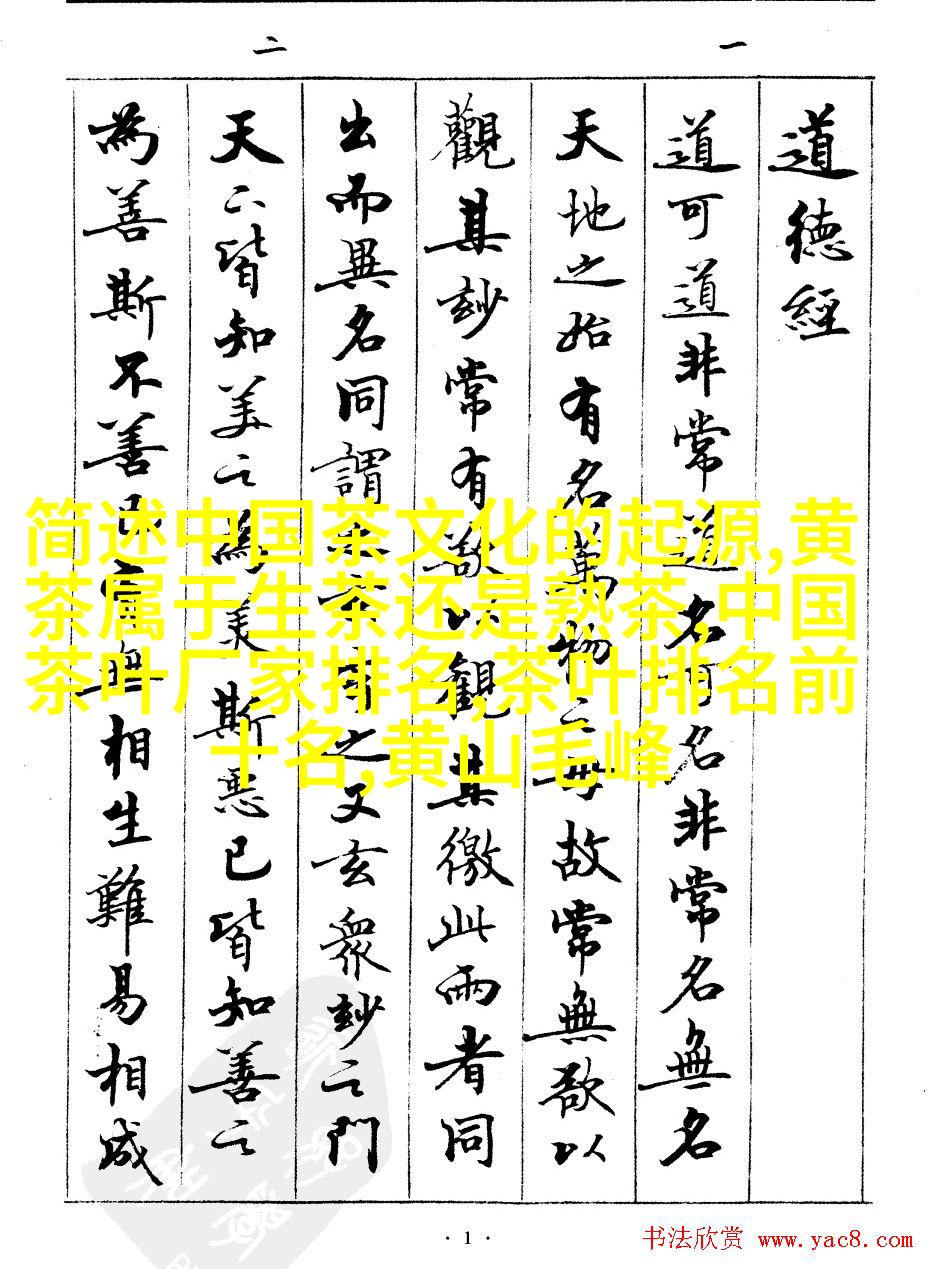 一
二
道德經
道可道非常道名可名非常名無名
天地之始有名萬物之母故常無欲以
觀其玅常有欲以觀其徼此兩者同
出而異名同謂之又玄眾玅之門
天下皆知美之為美斯惡已皆知善之
為善斯不善已無相生難易相成
简述中国茶文化的起源,黄
茶属于生茶还是熟茶,中国
茶叶厂家排名,茶叶排名前
十名,黄山毛峰
· 1 ·
书法欣赏 www.yac8.com